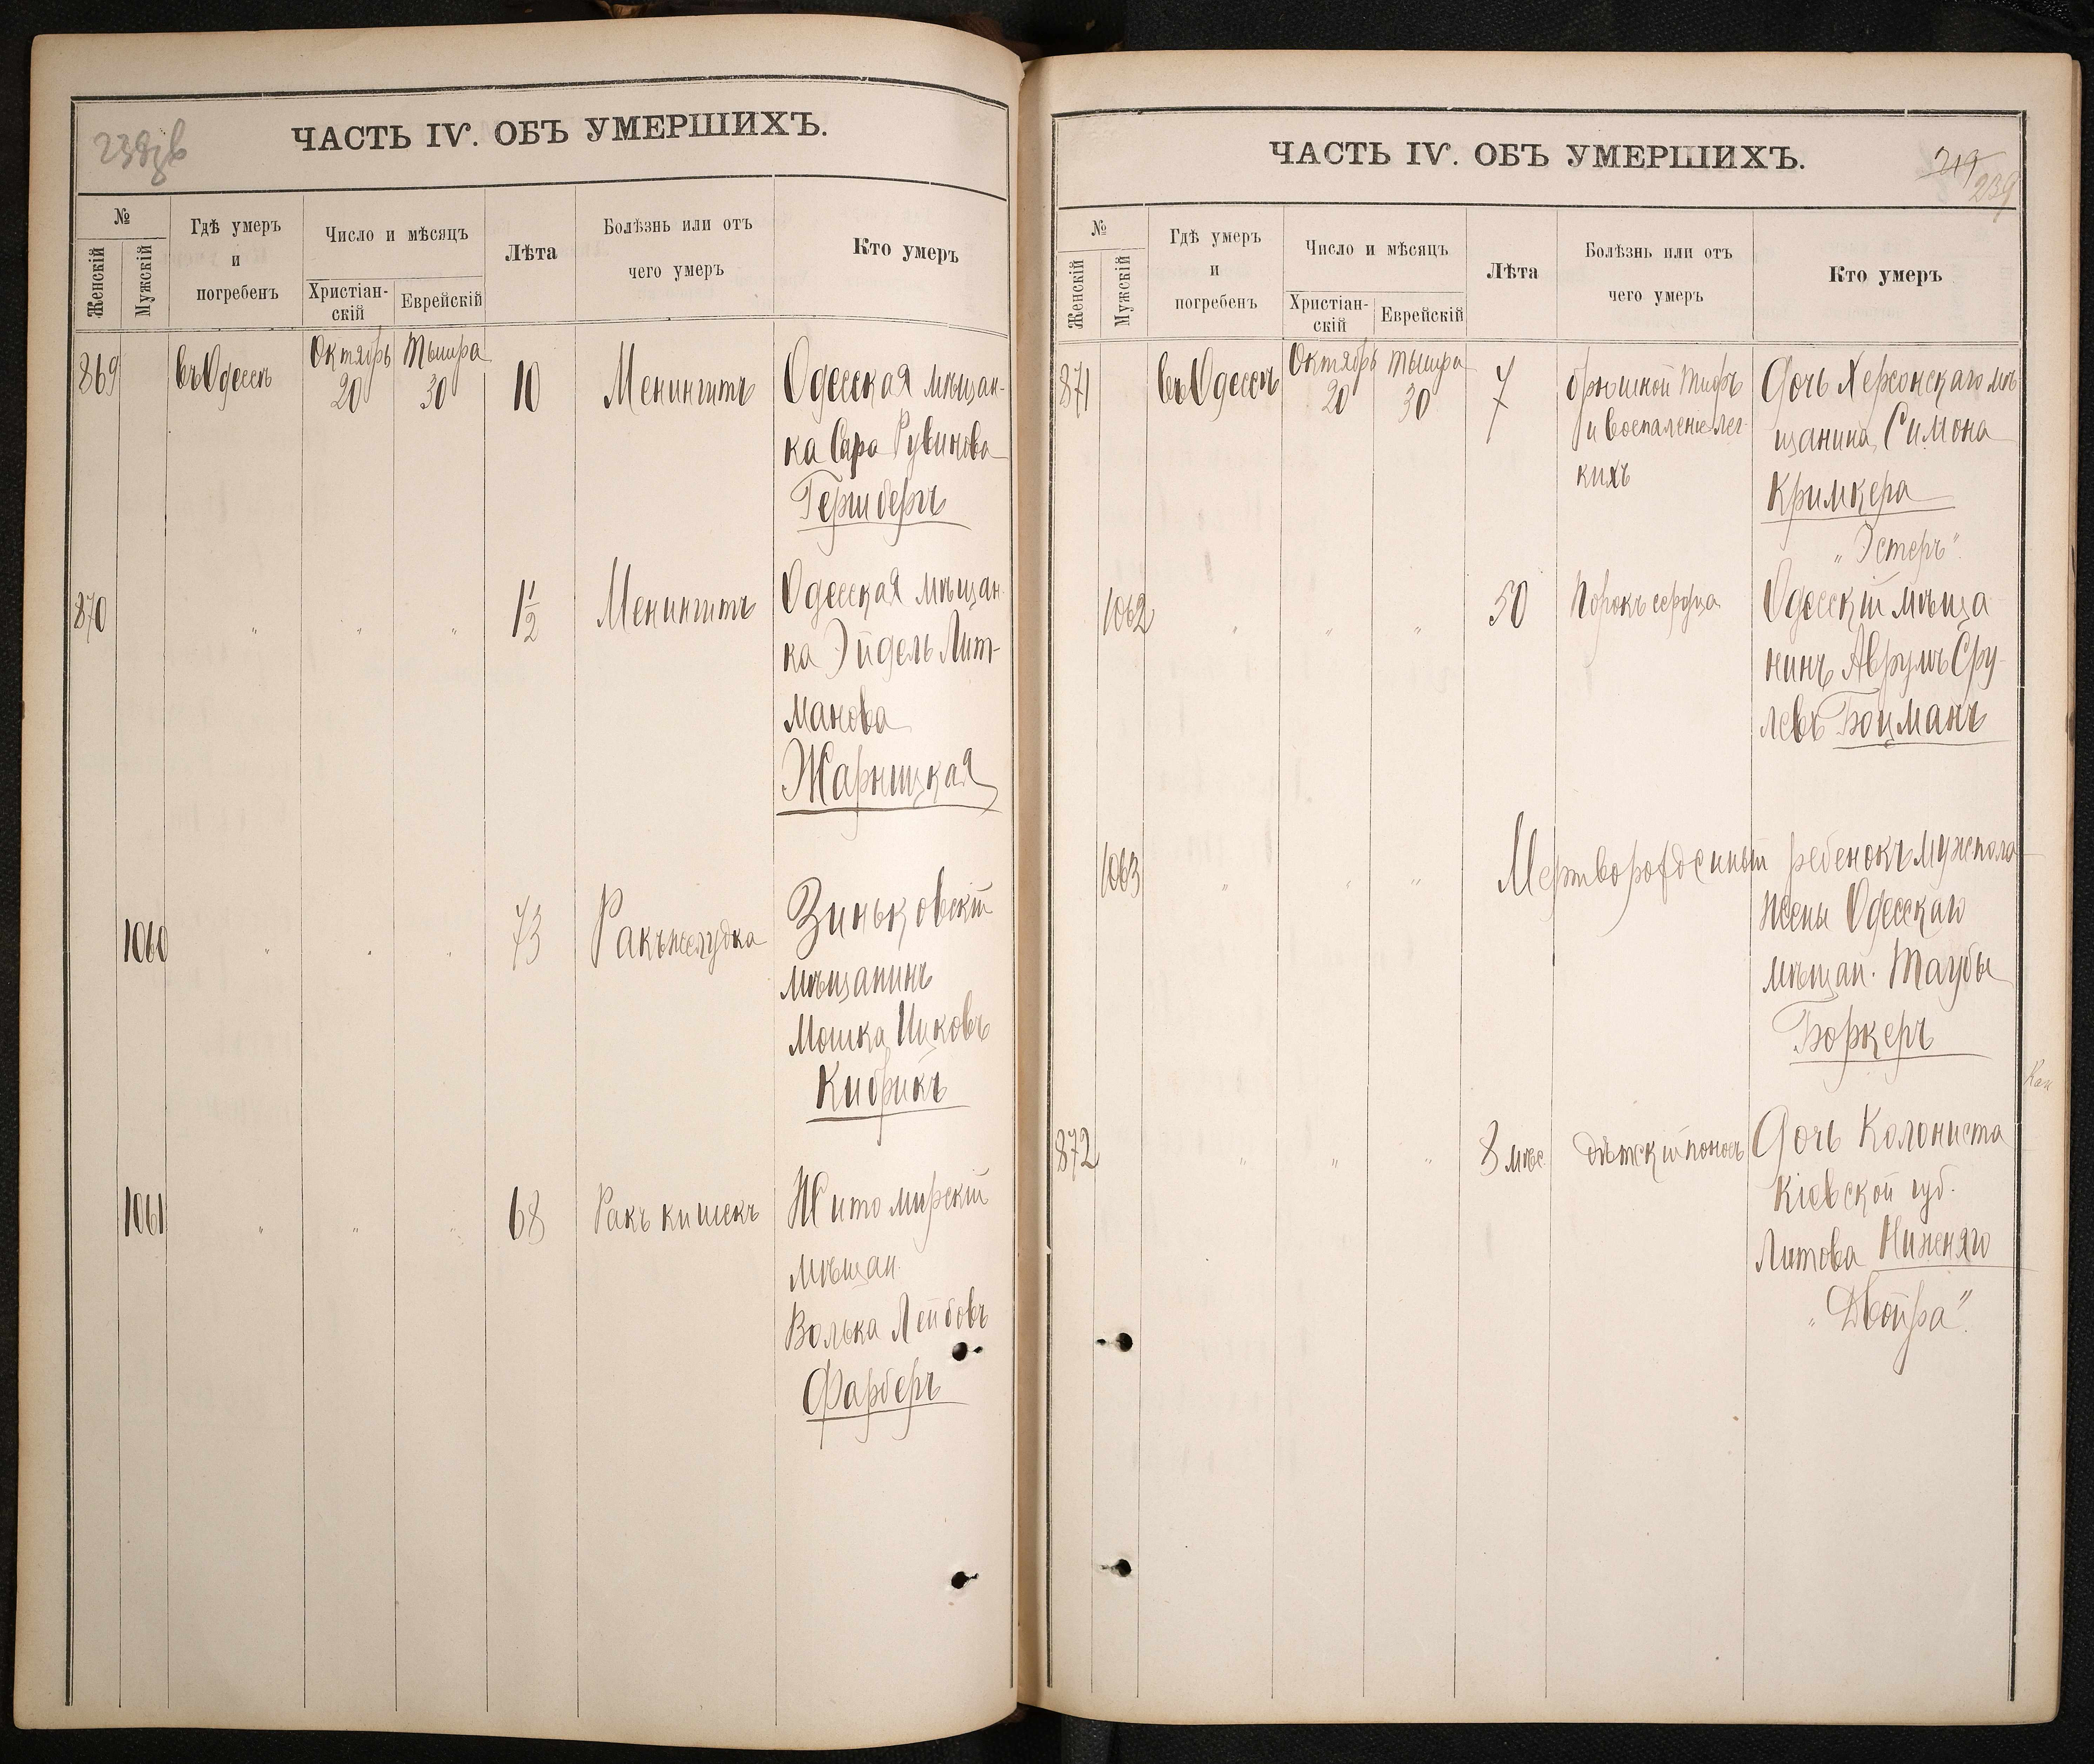 238 зв
ЧАСТЬ IV. ОБЪ УМЕРШИХЪ.
№
Женскій
Мужскій
Гдѣ умеръ
и
погребенъ
Число и мѣсяцъ
Христіан-
скій
Еврейскій
Лѣта
Болѣзнь или отъ
чего умеръ
Кто умеръ
869 въ Одессѣ Октябрь 20 Тышра 30 10 Менингитъ Одесская мѣщан-
ка Сара Рувинова
Гершбергъ
870 " " " 1 1/2 Менингитъ Одесская мѣщан-
ка Эйдель Лит-
манова
Жарницкая
1060 " " " 73 Ракъ желудка Зиньковскій
мѣщанинъ
Мошка Ицковъ
Кибрикъ
1061 " " " 68 Ракъ кишекъ Житомирскій
мѣщан.
Волька Лейбовъ
Фарберъ
ЧАСТЬ IV. ОБЪ УМЕРШИХЪ.
219
239
№
Женскій
Мужскій
Гдѣ умеръ
и
погребенъ
Число и мѣсяцъ
Христіан-
скій
Еврейскій
Лѣта
Болѣзнь или отъ
чего умеръ
Кто умеръ
871 въ Одессѣ Октябрь 20 Тышра 30 7 брюшной тифъ Дочь Херсонскаго мѣ
и воспаленіе лег- щанина Симона
кихъ Кримкера
"Эстеръ"
1062 " " " 50 Порокъ сердца Одесскій мѣща
нинъ Аврумъ Сру-
левъ Боцманъ
1063 " " " Мертворожденный ребенокъ муж пола
жены Одесскаго
мѣщан. Таубы
Боркеръ
872 " " " 8 мѣс. дѣтскій поносъ Дочь Колониста
Кіевской губ.
Литова Нижняго
"Двойра"